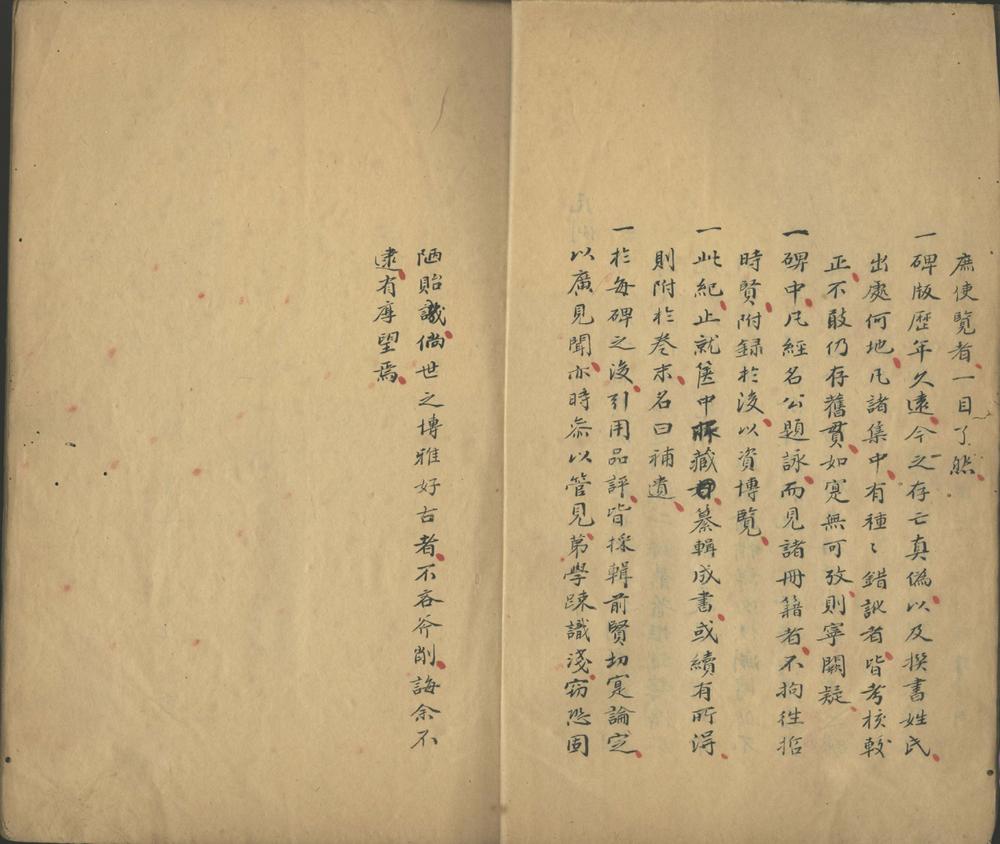 庶使覽者一目了然
一碑版歷年久遠今之存亡真偽以及撰書姓氏
出處何地凡諸集中有種〻錯訛者皆考核較
正不敢仍存舊貫如寔無可攷則寧闕疑
一碑中凡經名公題詠而見諸冊籍者不拘徃哲
時賢附録於後以資博覽
一此紀止就篋中所藏纂輯成書或續有所淂
則附於卷末名曰補遺
一於每碑之後引用品評皆採輯前賢切寔論定
以廣見聞亦時叅以管見苐學踈識淺窃恐固
陋貽譏倘世之博雅好古者不吝斧削誨余不
逮有厚望焉